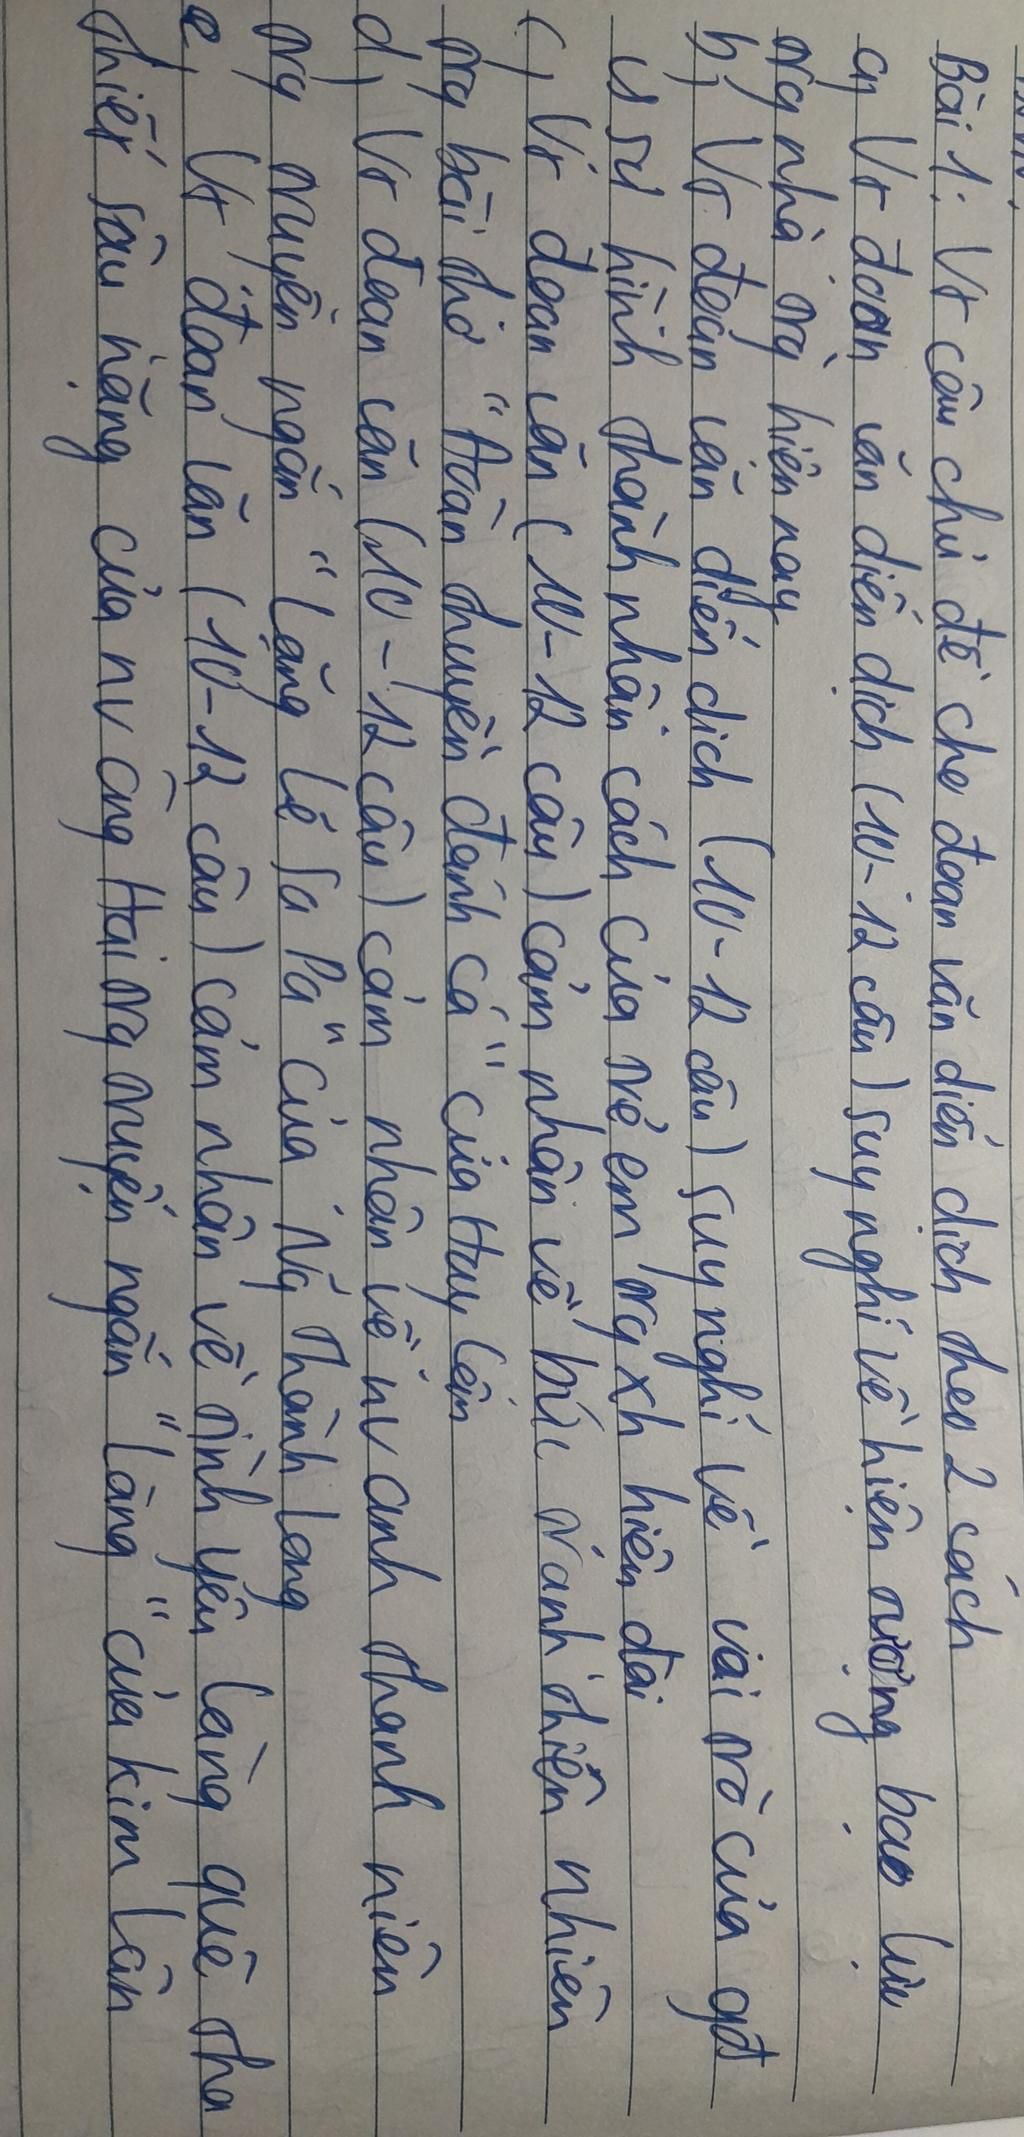 Bài 1: Vt câu chủ đề cho đoạn văn diễn dịch theo 2 cách
a, Vt đoạn văn diễn dịch (10-12 câu) suy nghĩ về hiện tượng bạo lực
trg nhà trg hiện nay
b, Vt đoạn văn diễn dịch (10-12 câu) suy nghĩ về vai trò của gđ
vs sự hình thành nhân cách của trẻ em trg xh hiện đại
c, Vt đoạn văn (10-12 câu) cảm nhận về bức tranh thiên nhiên
trg bài thơ "Đoàn thuyền đánh cá" của Huy Cận
d, Vt đoạn văn (10-12 câu) cảm nhận về nv anh thanh niên
trg truyện ngắn "Lặng lẽ Sa Pa" của Ng Thành Long
e, Vt đoạn văn (10-12 câu) cảm nhận về tình yêu làng quê tha
thiết sâu nặng của nv ông Hai trg truyện ngắn "Làng" của Kim Lân